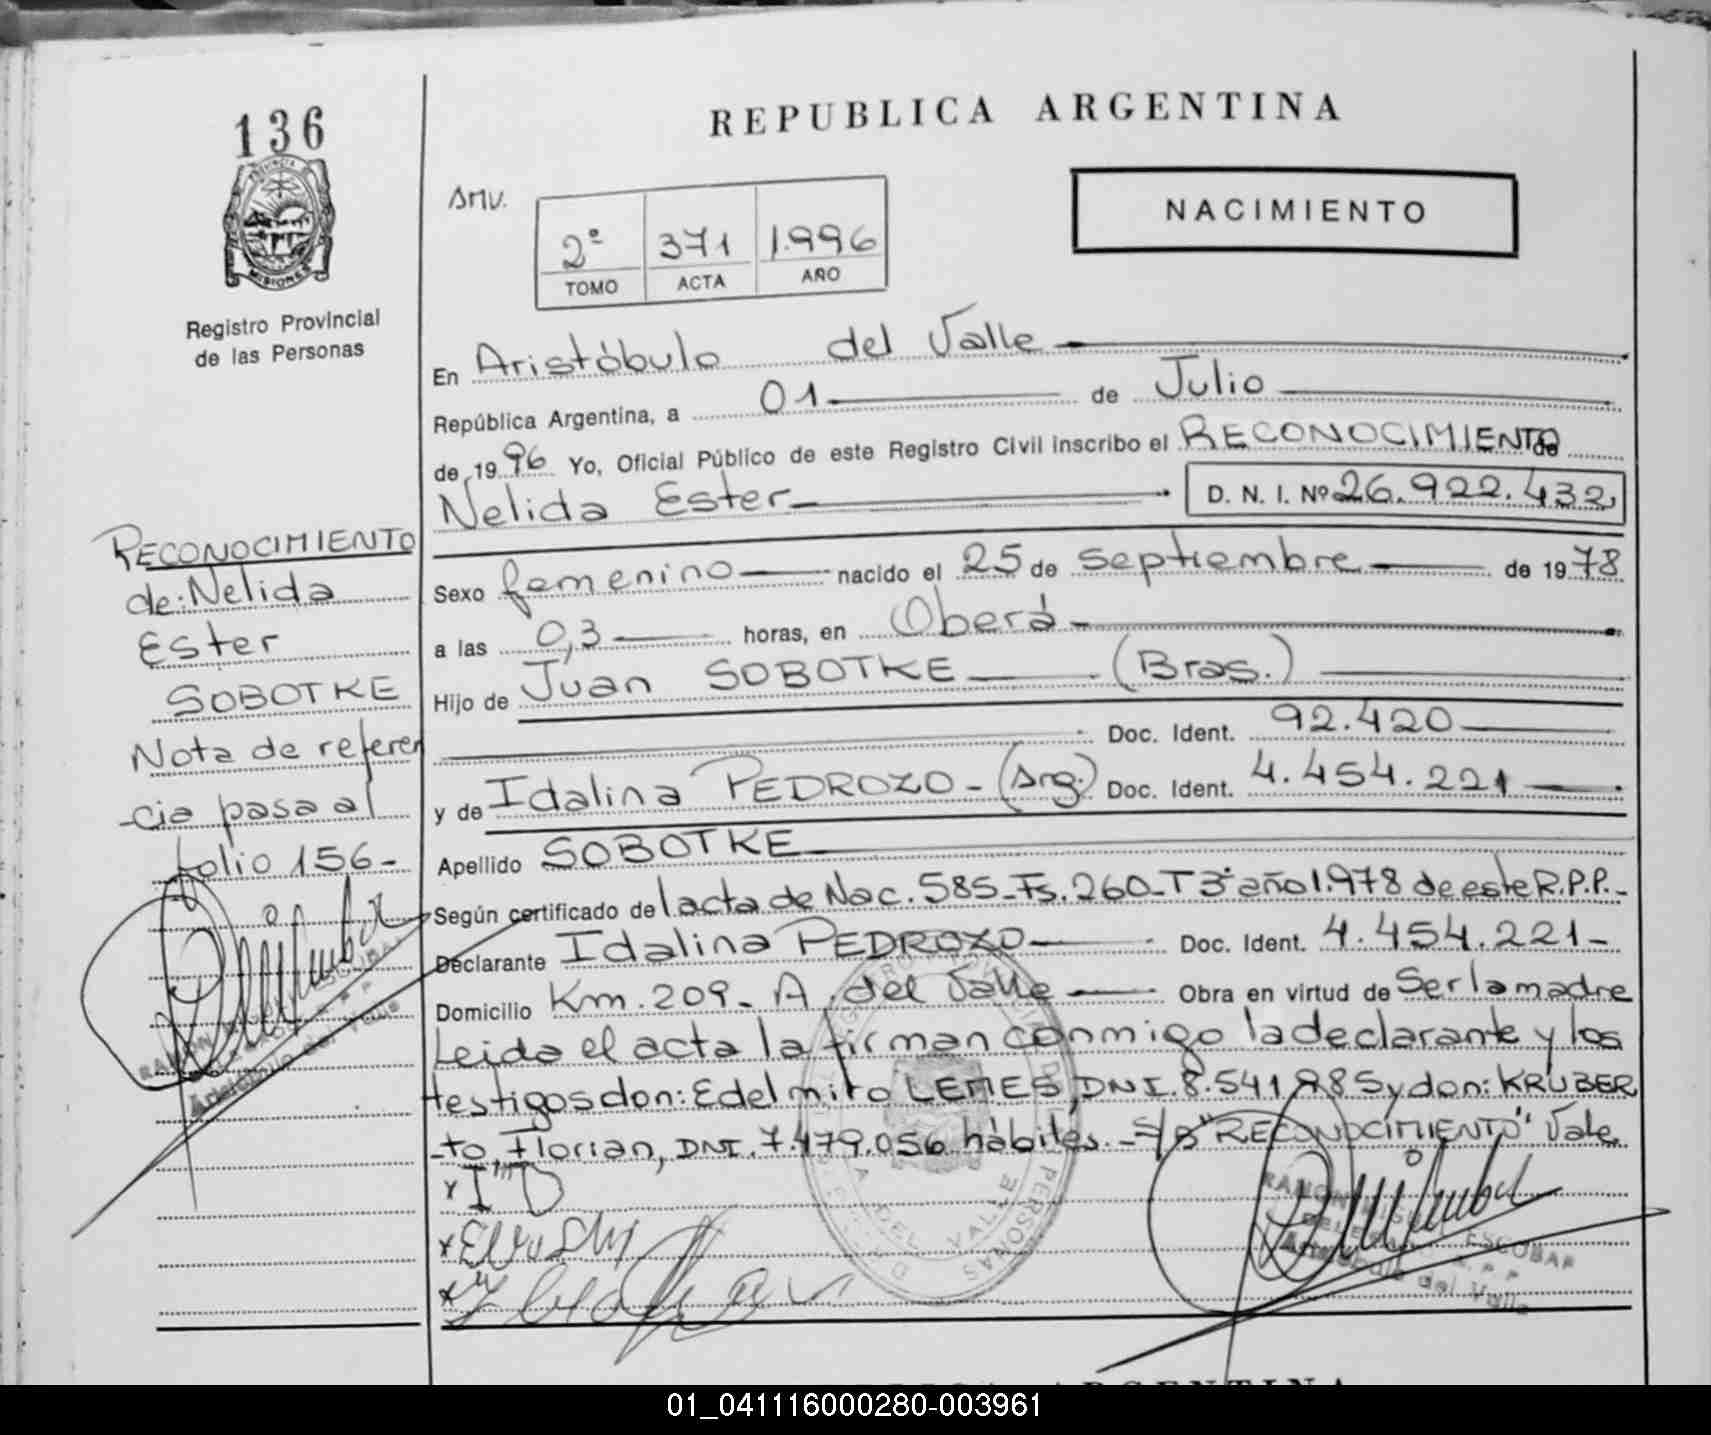 136
PROVINCIA
MISIONES
Registro Provincial
de las Personas
REPUBLICA ARGENTINA
NACIMIENTO
2º 371 1.996
TOMO ACTA AÑO
En Aristóbulo del Valle
República Argentina, a 01 de Julio
de 1996 Yo, Oficial Público de este Registro Civil inscribo el RECONOCIMIENTO de
Nelida Ester D. N. I. Nº 26.922.432
Sexo femenino nacido el 25 de septiembre de 1978
a las 0,3 horas, en Oberá
Hijo de Juan SOBOTKE (Bras.)
Doc. Ident. 92.420
y de Idalina PEDROZO - (Arg.) Doc. Ident. 4.454.221
Apellido SOBOTKE
Según certificado del acta de Nac. 585-Fs. 260-T3º año 1.978 de este R.P.P.-
Declarante Idalina PEDROZO Doc. Ident. 4.454.221-
Domicilio Km. 209- A. del Valle Obra en virtud de Ser la madre
Leida el acta la firman conmigo la declarante y los
testigos don: Edelmiro LEMES, DNI. 8.541.985 y don: KRUBER
-to, Florian, DNI. 7.479.056 hábiles.- S/B "RECONOCIMIENTO" Vale
RECONOCIMIENTO
de: Nelida
Ester
SOBOTKE
Nota de referen
-cia pasa al
folio 156-
A. DEL VALLE
PERSONAS
ESCOBAR
Aristobulo del Valle
01_041116000280-003961